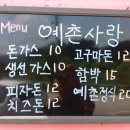 Menu 예촌사랑
돈가스 10 고구마돈 12
생선가스 10 함박 15
피자돈 12 예촌정식 20
치즈돈 12